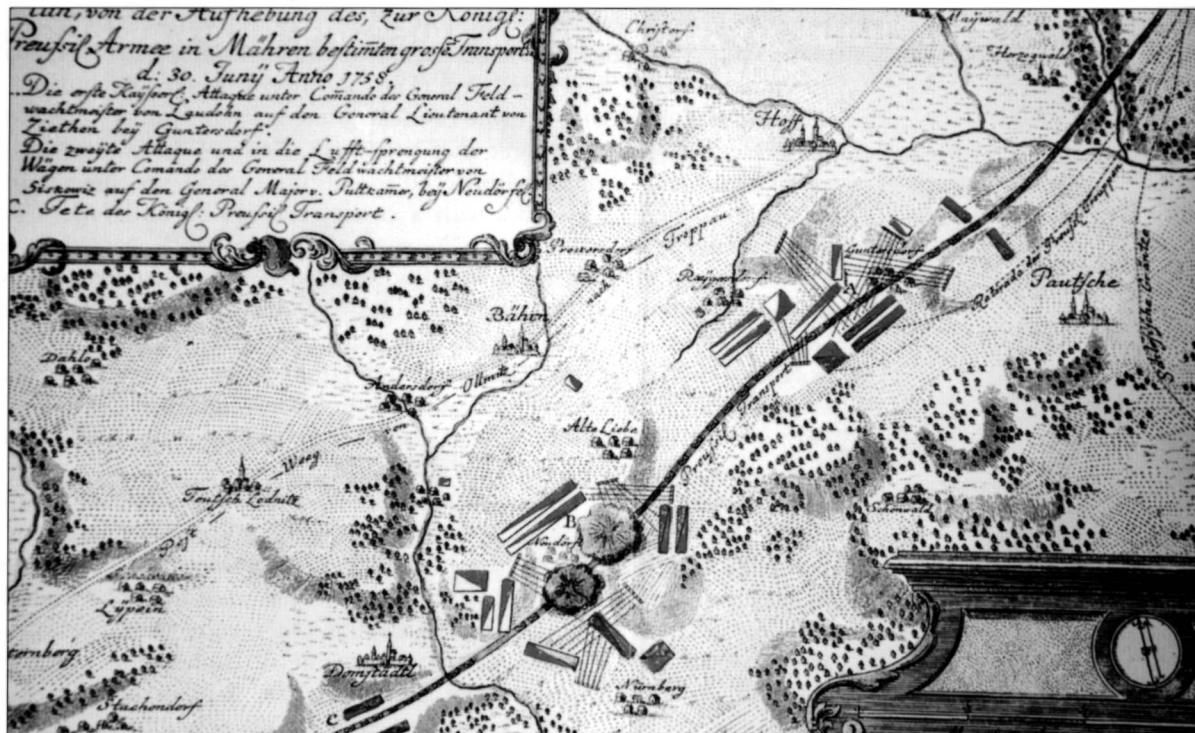 von der Aufhebung des, zur Königl:
Preusisl. Armee in Mähren bestim̄ten grosse Transport
d: 30. Junij Anno 1758.
Die erste Kayserl: Attaque unter Com̄ando des General Feld-
wachtmeister von Laudohn auf den General Lieutenant von
Ziethen bey Guntersdorf.
Die zweÿte Attaque und in die Lufft-sprengung der
Wägen unter Comando des General Feldwachtmeister von
Siskowiz auf den General Major v. Puttkam̄er, beÿ Neudörfel
C. Tete der Königl: Preusisl. Transport.
Christorf
Maywald
Herzogwald
Hoff
nach Troppau
Guntersdorf
A
Retirade der Preusl. Trouppen
Pautsche
Bährn
Dahle
Andersdorf
Ollmitz
Alte Liebe
Preusisl. Transport
Weeg
Teutsch Lodnitz
Post
Schönwald
B
Neudörfl
Lÿpein
ternberg
Domstadtl
Nürnberg
Stachendorf
C